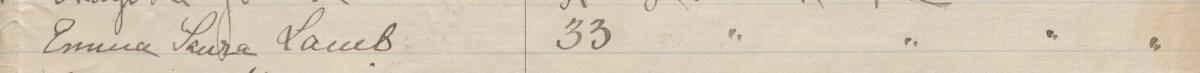 Emma Laura Lamb 33 " " " "